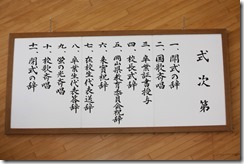 式次第
一、開式の辞
二、国歌斉唱
三、卒業証書授与
四、校長式辞
五、岡山県教育委員会祝辞
六、来賓祝辞
七、在校生代表送辞
八、卒業生代表答辞
九、蛍の光斉唱
十、校歌斉唱
十一、閉式の辞